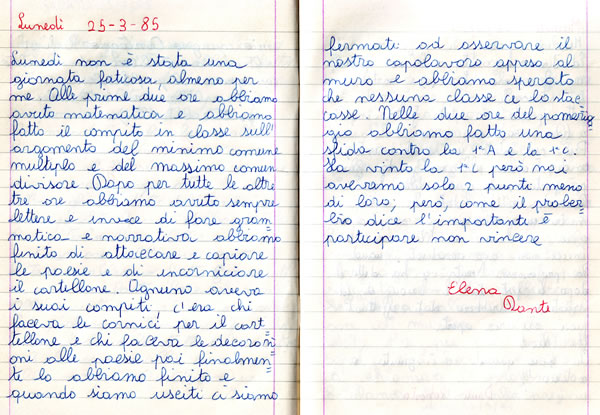 Lunedì 25-3-85
Lunedì non è stata una
giornata faticosa, almeno per
me. Alle prime due ore abbiamo
avuto matematica e abbiamo
fatto il compito in classe sull'
argomento del minimo comune
multiplo e del massimo comun
divisore. Dopo per tutte le altre
tre ore abbiamo avuto sempre
lettere e invece di fare gram=
matica e narrativa abbiamo
finito di attaccare e copiare
le poesie e di incorniciare
il cartellone. Ognuno aveva
i suoi compiti, c'era chi
faceva le cornici per il cart=
tellone e chi faceva le decorazi=
oni alle poesie poi finalmen=
te lo abbiamo finito e
quando siamo usciti ci siamo
fermati ad osservare il
nostro capolavoro appeso al
muro e abbiamo sperato
che nessuna classe ce lo stac=
casse. Nelle due ore del pomerig=
gio abbiamo fatto una
sfida contro la 1ªA e la 1ªC.
Ha vinto la 1ªC però noi
avevamo solo 2 punti meno
di loro; però, come il prover=
bio dice l'importante è
partecipare non vincere
Elena
Dante